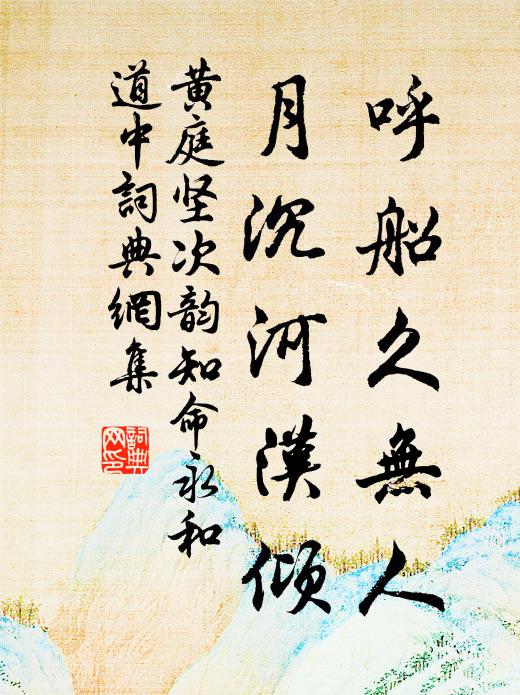 呼船久無人
月沉河漢傾
黄庭坚次韵知命永和
道中詞典網集
詞典
网印